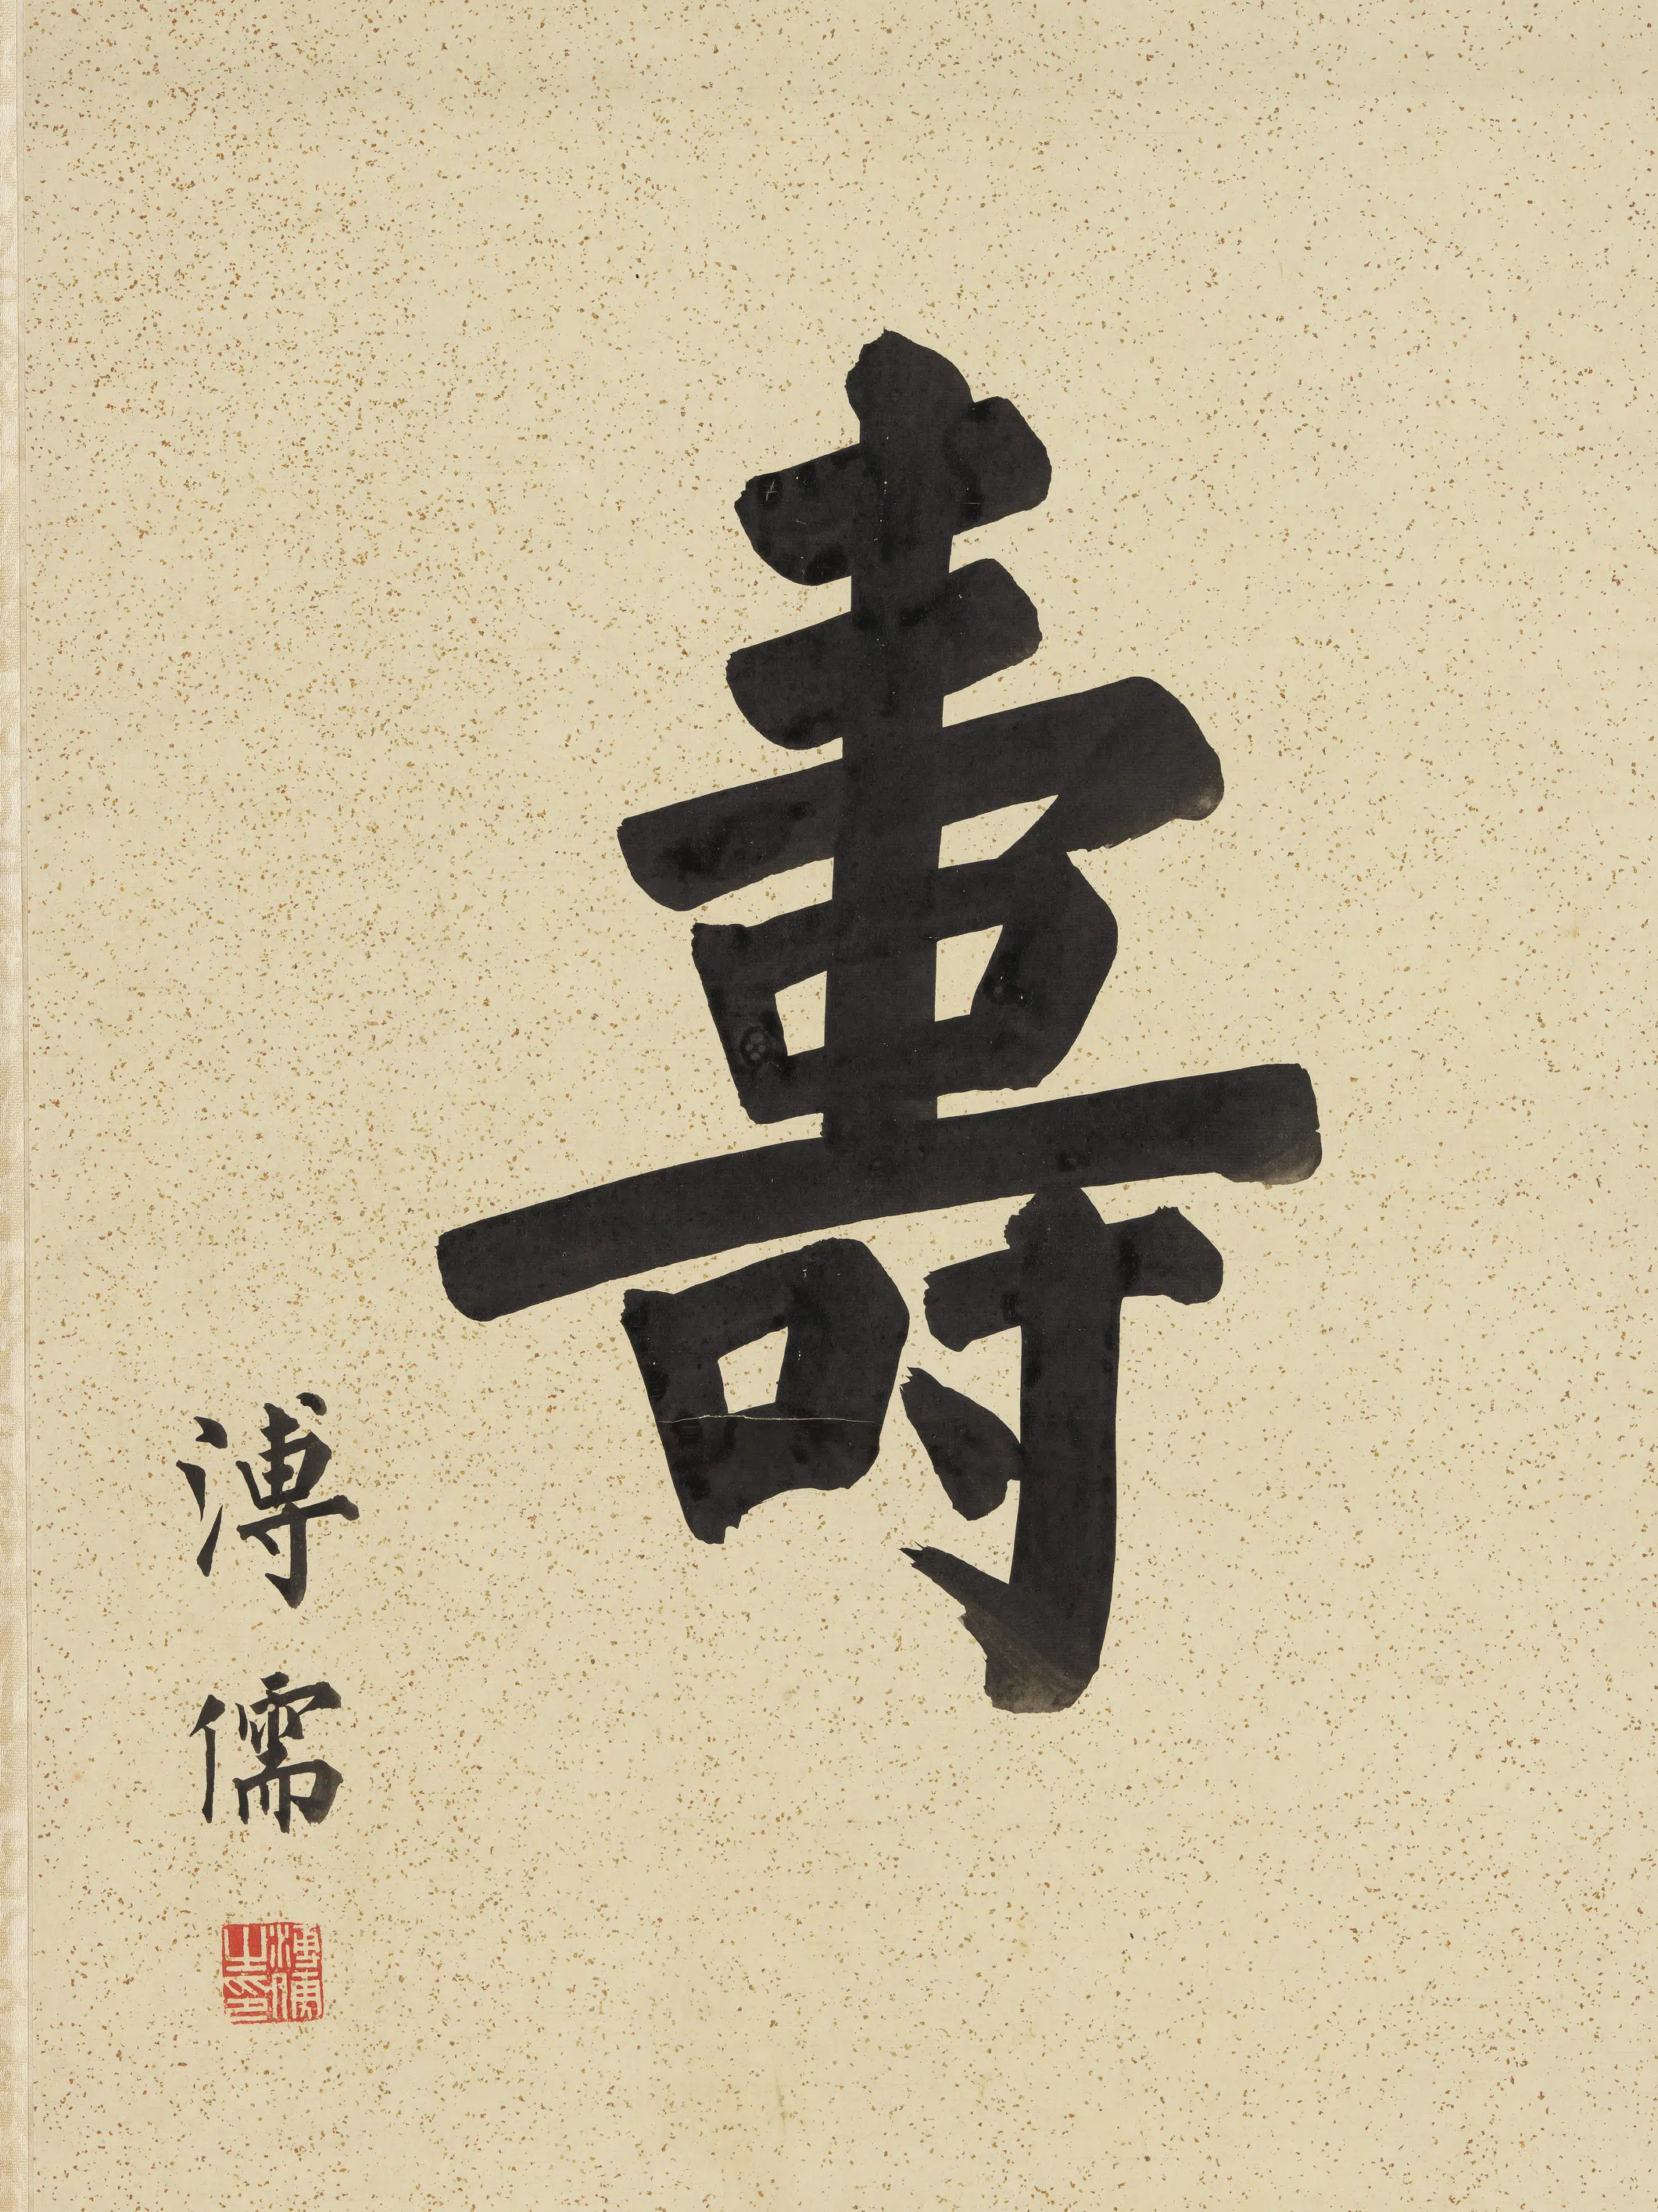 壽
溥儒
溥儒之印